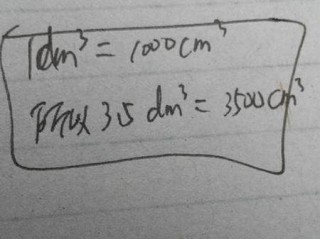 1dm³ = 1000cm³
所以 3.5 dm³ = 3500cm³